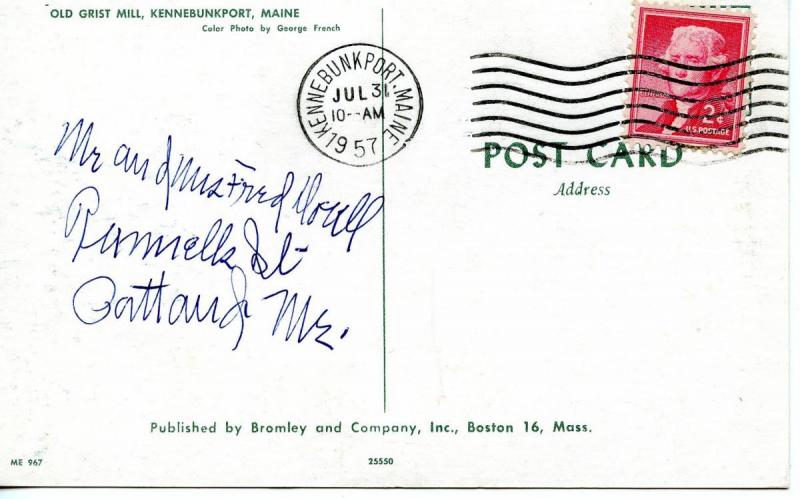 OLD GRIST MILL, KENNEBUNKPORT, MAINE
Color Photo by George French
KENNEBUNKPORT, MAINE
JUL 31
10--AM
1957
2¢
U.S. POSTAGE
POST CARD
Address
Mr and Mrs Fred
St
Portland Me.
Published by Bromley and Company, Inc., Boston 16, Mass.
ME 967
25550